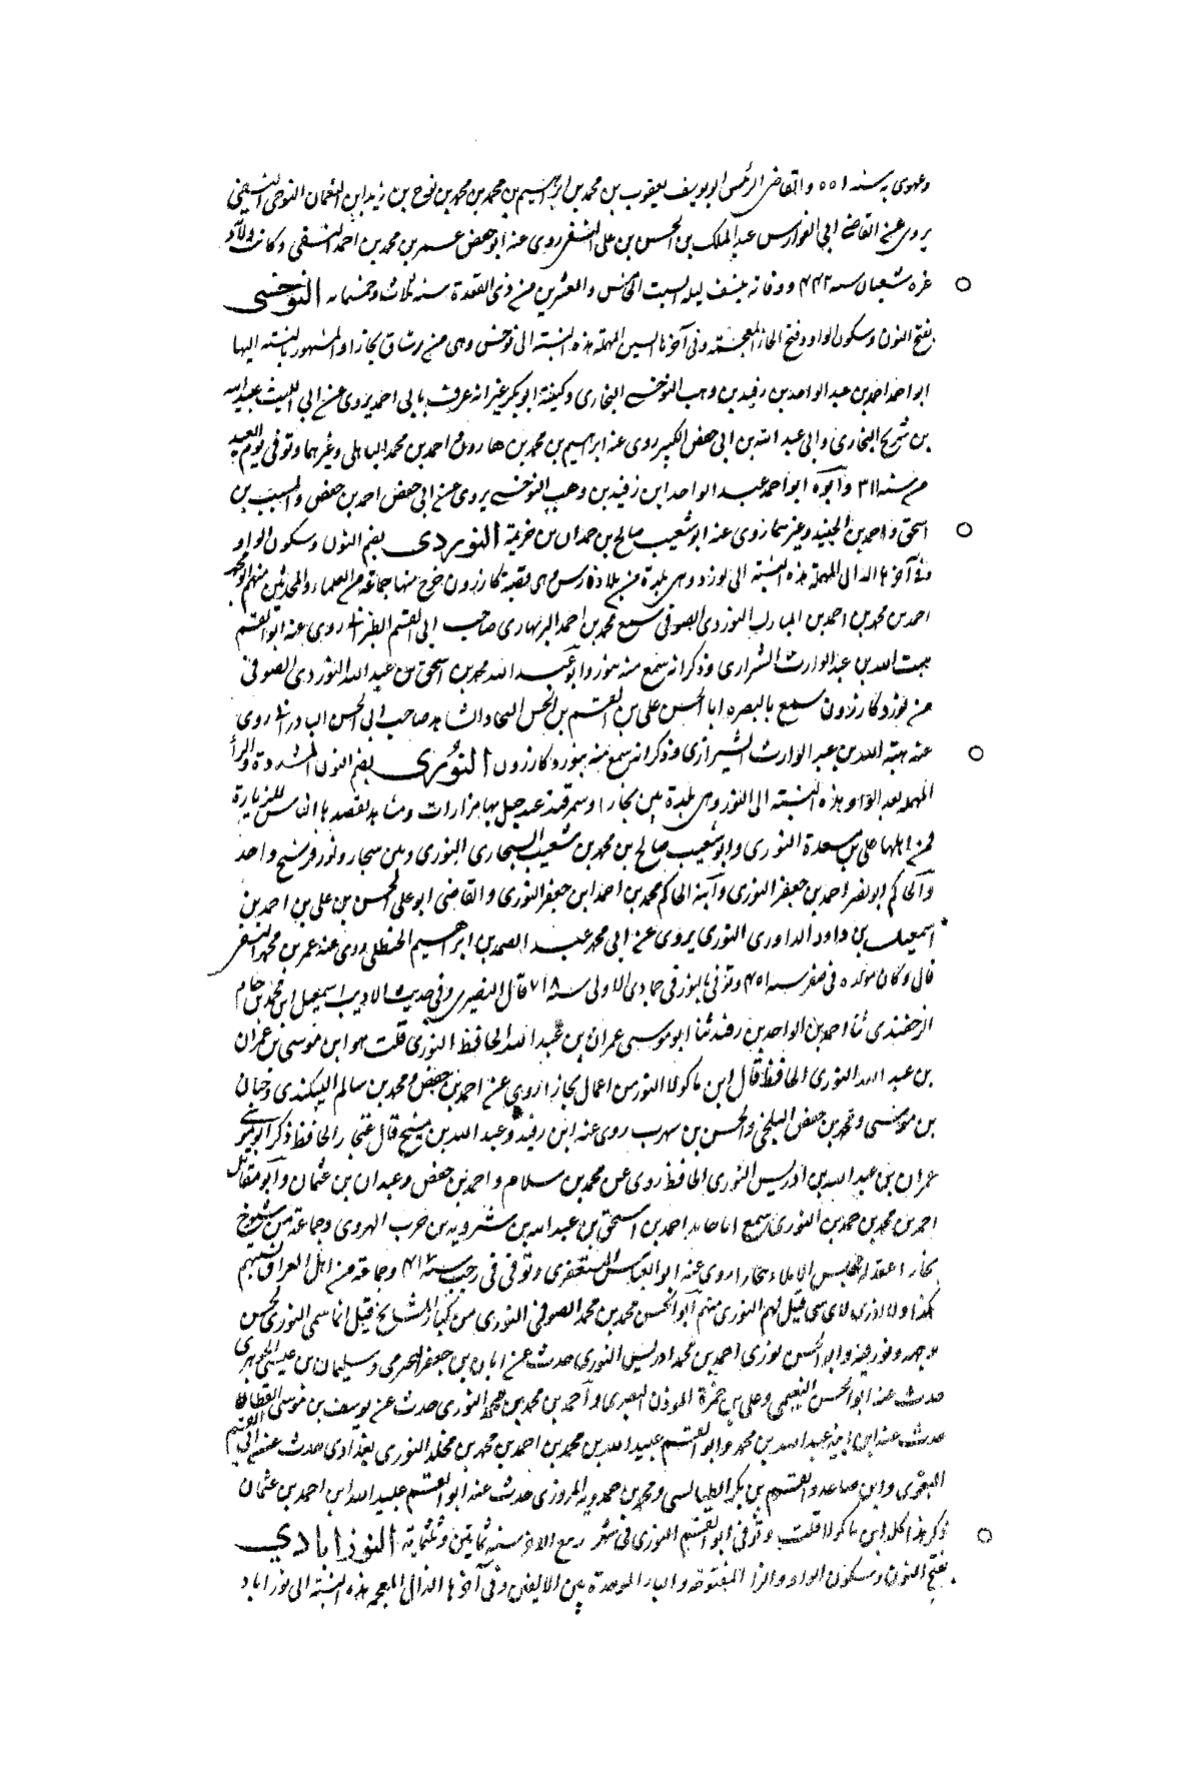 وعهوى به سنه ٥٥١ والقاضى الرئيس ابو يوسف يعقوب بن محمد بن ابرهيم بن محمد بن محمد بن نوح بن زيد ابن النعمان النوحى النسفى
يروى عن القاضى ابى الفوارس عبد الملك بن الحسن بن على النسفى روى عنه ابو حفص عمر بن محمد بن احمد النسفى وكانت ولادته
غره شعبان سنه ٤٤٢ ووفاته بنسف ليله السبت الخامس والعشرين من ذى القعدة سنه ثلاث وخمسمائه النوخسى
بفتح النون وسكون الواو وفتح الخا المعجمة وفى آخرها السين المهملة هذه النسبة الى نوخس وهى من رستاق بخارا والمشهور بالنسبه اليها
ابو احمد احمد بن عبد الواحد بن رفيد بن وهب النوخسى البخارى وكنيته ابو بكر غير انه عرف بابى احمد يروى عن ابى الليث عبيد الله
بن شريح البخارى وابى عبد الله بن ابى حفص الكبير روى عنه ابرهيم بن محمد بن هارون واحمد بن محمد الباهلى وغيرهما وتوفى يوم العيد
من سنه ٣١١ وابوه ابو احمد عبد الواحد ابن رفيد بن وهب النوخسى يروى عن ابى حفص احمد بن حفص والمسيب بن
اسحق واحمد بن الجنيد وغيرهما روى عنه ابو شعيب صالح بن حمدان بن خزيمة النوردى بضم النون وسكون الواو
وفى آخرها الدال المهملة هذه النسبة الى نورد وهى بلدة من بلاد فارس وهى قصبة كازرون خرج منها جماعة من العلماء والمحدثين منهم ابو محمد
احمد بن محمد بن احمد بن المبارك النوردى الصوفى سمع محمد بن احمد البربهارى صاحب ابى القسم الطبرانى روى عنه ابو القسم
هبت الله بن عبد الوارث الشيرازى وذكر انه سمع منه بنورد وابو عبد الله محمد بن اسحق بن عبد الله النوردى الصوفى
من نورد كازرون سمع بالبصره ابا الحسن على بن القسم بن الحسن النجاد الشاهد صاحب ابى الحسن البادرانى روى
عنه هبة الله بن عبد الوارث الشيرازى وذكر انه سمع منه بنورد كازرون النورى بضم النون المشددة والرأ
المهمله بعد الواو هذه النسبة الى النور وهى بلدة بين بخارا وسمرقند عند جبل بها مزارات ومشاهد يقصدها الناس للزيارة
فمن اهلها على بن سعدة النورى وابو شعيب صالح بن محمد بن شعيب السنجارى النورى وبين سنجار ونور فرسخ واحد
والحاكم ابو نصر احمد بن جعفر النورى وابنه الحاكم محمد بن احمد ابن جعفر النورى والقاضى ابو على الحسن بن على بن احمد بن
اسمعيل بن داود الداودى النورى يروى عن ابى محمد عبد الصمد بن ابراهيم الحنظلى روى عنه عمر بن محمد النسفى
قال وكان مولده فى صفر سنه ٤٥١ وتوفى بالنور فى جمادى الاولى سنه ٥١٨ قال البصيرى وفى حديث الاديب اسمعيل ابن محمد بن حام
ثنا احمد بن الواحد بن رفيد ثنا ابو موسى عمران بن عبد الله الحافظ النورى قلت هو ابن موسى بن عمران
بن عبد الله النورى الحافظ قال ابن ماكولا النور من اعمال بخارا روى عن احمد بن حفص ومحمد بن سالم البيكندى وحبان
بن موسى ومحمد بن حفص البلخى والحسن بن سهرب روى عنه ابن رفيد وعبد الله بن منيح قال غنجار الحافظ ذكر ابو موسى
عمران بن عبد الله بن ادريس النورى الحافظ روى عن محمد بن سلام واحمد بن حفص وعبدان بن عثمان وابو مقاتل
احمد بن محمد بن حمد بن النورى سمع ابا حامد احمد بن اسحق بن عبد الله بن شرويه بن حرب الهروى وجماعة من شيوخ
بخارا عقد له مجلس الاملاء ببخارا روى عنه ابو العباس المستغفرى وتوفى فى رجب سنه ٤١٢ وجماعة من اهل العراق نسبتهم
هكذا ولا ادرى لاى شى قيل لهم النورى منهم ابو الحسن محمد بن محمد الصوفى النورى من كبار المشايخ قيل انما سمى النورى لحسن
وجهه ونور فيه وابو الحسن نورى احمد بن محمد ادريس النورى حدث عن ابان بن جعفر النجرمى وسليمان بن عيسى الجوهرى
حدث عنه ابو الحسن النعيمى وعلى بن حمزة المؤذن البصرى واحمد بن محمد بن مخلد النورى حدث عن يوسف بن موسى القطان
حدث عنه ابن اخيه عبد الله بن محمد وابو القسم عبيد الله بن محمد بن احمد بن محمد بن مخلد النورى بغدادى حدث عن ابى القسم
البغوى وابن صاعد والقسم بن بكر الطيالسى ومحمد بن حمدويه المروزى حدث عنه ابو القسم عبيد الله ابن احمد بن عثمان
ذكر هذا كله ابن ماكولا قلت وتوفى ابو القسم النورى فى شهر ربيع الاخر سنه ثمانين وثلثمائة النوزابادي
بفتح النون وسكون الواو والزا المفتوحه والبا الموحدة بين الالفين وفى آخرها الذال المعجمه هذه النسبة الى نوزاباد